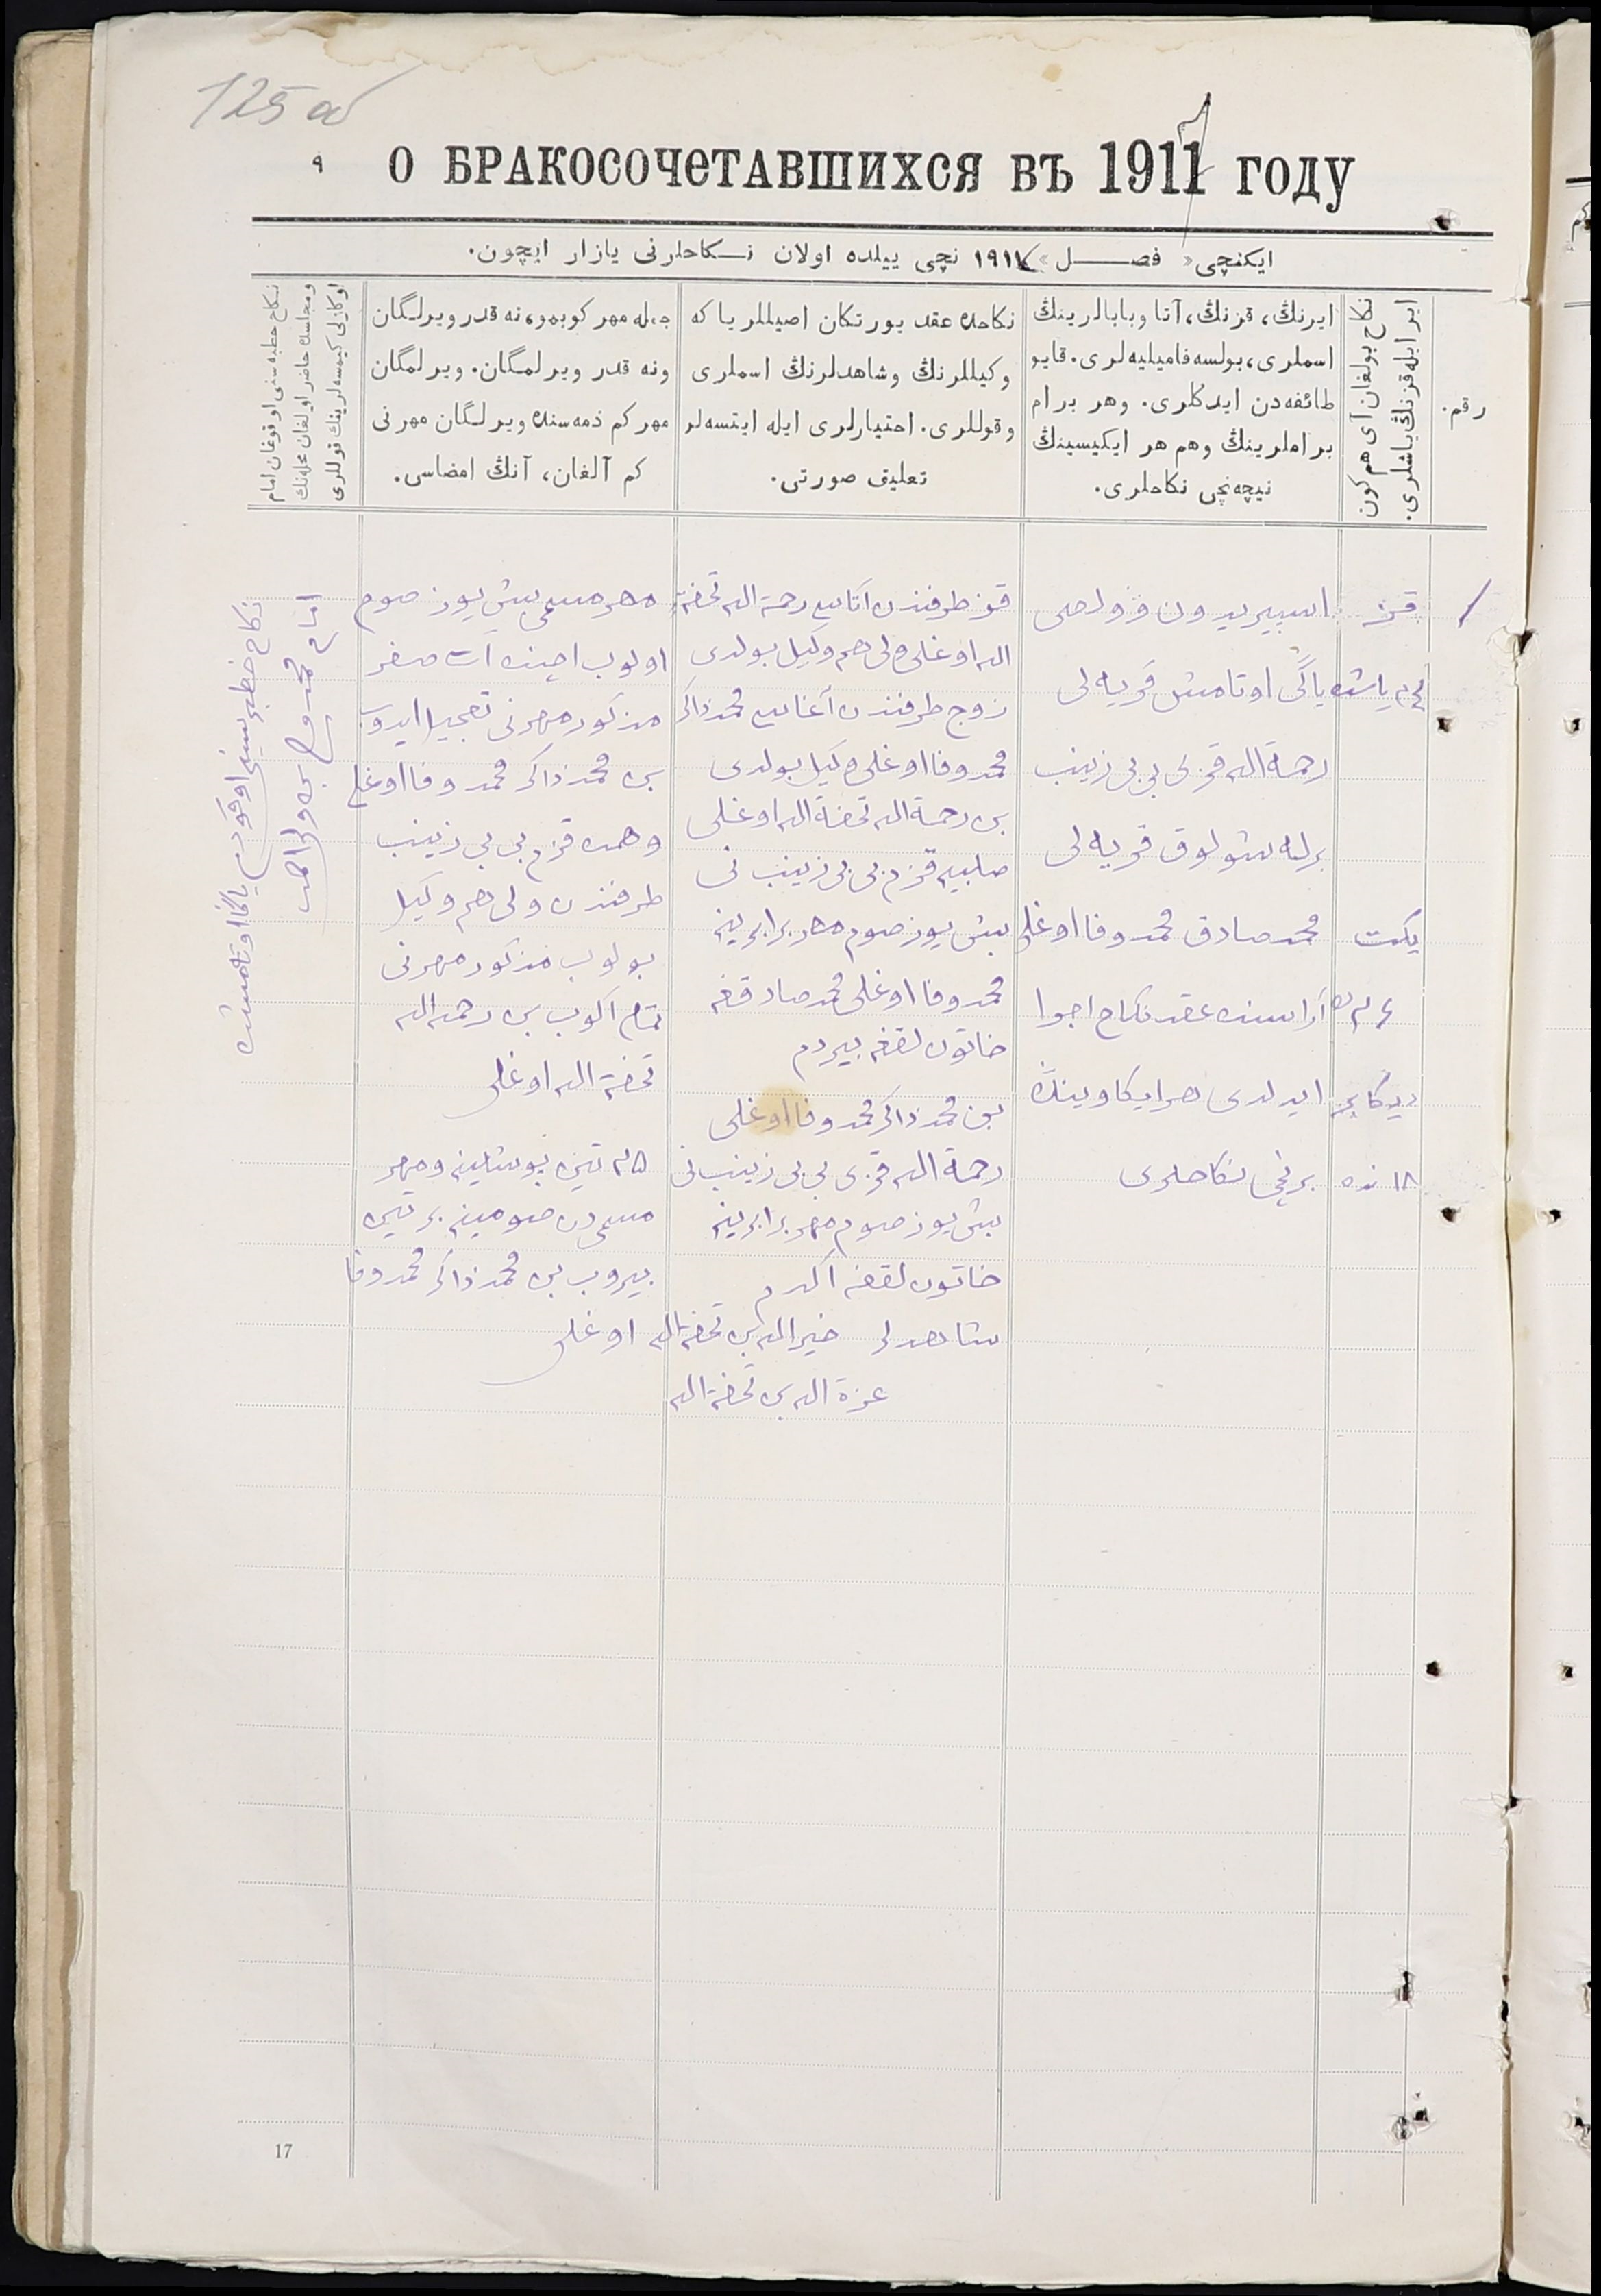 125 об
٩
О БРАКОСОЧЕТАВШИХСЯ ВЪ 1911 ГОДУ
ایکنچی «فصل» ١٩١١ نچی ییلده اولان نکاحلرنی یازار ایچون.
رقم.
ایر ایله قزنڭ یاشلری.
نکاح بولغان آی هم کون
ایرنڭ، قزنڭ، آتا وبابالرینڭ
اسملری، بولسه فامیلیه لری. قایو
طائفه دن ایدکلری. وهر برام
براملرینڭ وهم هر ایکیسینڭ
نیچه نچی نکاحلری.
نکاحده عقد یورتکان اصیللر یا که
وکیللرنڭ وشاهدلرنڭ اسملری
وقوللری. احتیارلری ایله ایتسه لر
تعلیق صورتی.
جمله مهر کوبمو، نه قدر ویرلگان
ونه قدر ویرلمگان. ویرلمگان
مهر کم ذمه سنده ویرلگان مهرنی
کم آلغان، آنڭ امضاسی.
نکاح خطبه سنی اوقوغان امام
ومجلسده حاضر اولغان محله نڭ
اوکازلی کیمسه لرینڭ قوللری
١
قز
یاشده
یکت
دیکابر
١٨ نده
یاڭی اوتامش قریه لی
رحمة الله قزی بی بی زینب
برله شولوق قریه لی
محمد صادق محمد وفا اوغلی
آراسنده عقد نکاح اجرا
ایدلدی هر ایکاوینڭ
برنچی نکاحلری
قز طرفندن آتاسی رحمة الله تحفة
الله اوغلی ولی هم وکیل بولدی
زوج طرفندن آغاسی محمد ذاکر
محمد وفا اوغلی وکیل بولدی
بن رحمة الله تحفة الله اوغلی
صلبیه قزم بی بی زینب نی
بش یوز صوم مهر برابرینه
محمد وفا اوغلی محمد صادقغه
خاتونلقغه بیردم
بن محمد ذاکر محمد وفا اوغلی
رحمة الله قزی بی بی زینب نی
بش یوز صوم مهر برابرینه
خاتونلقغه آلدم
شاهدلر خیر الله بن تحفة الله اوغلی
عزة الله بن تحفة الله
مهر مسمی بش یوز صوم
اولوب
مذکور مهرنی تعجیل ایدوب
بن محمد ذاکر محمد وفا اوغلی
وهمده قزم بی بی زینب
طرفندن ولی هم وکیل
بولوب مذکور مهرنی
تمام آلوب بن رحمة الله
تحفة الله اوغلی
٢٥ تین پوشلینه ومهر
مسمی دن صومینه بر تین
بیروب بن محمد ذاکر محمد وفا
نکاح خطبه سینی اوقودم یاڭا اوتامشده
امام محمد
17